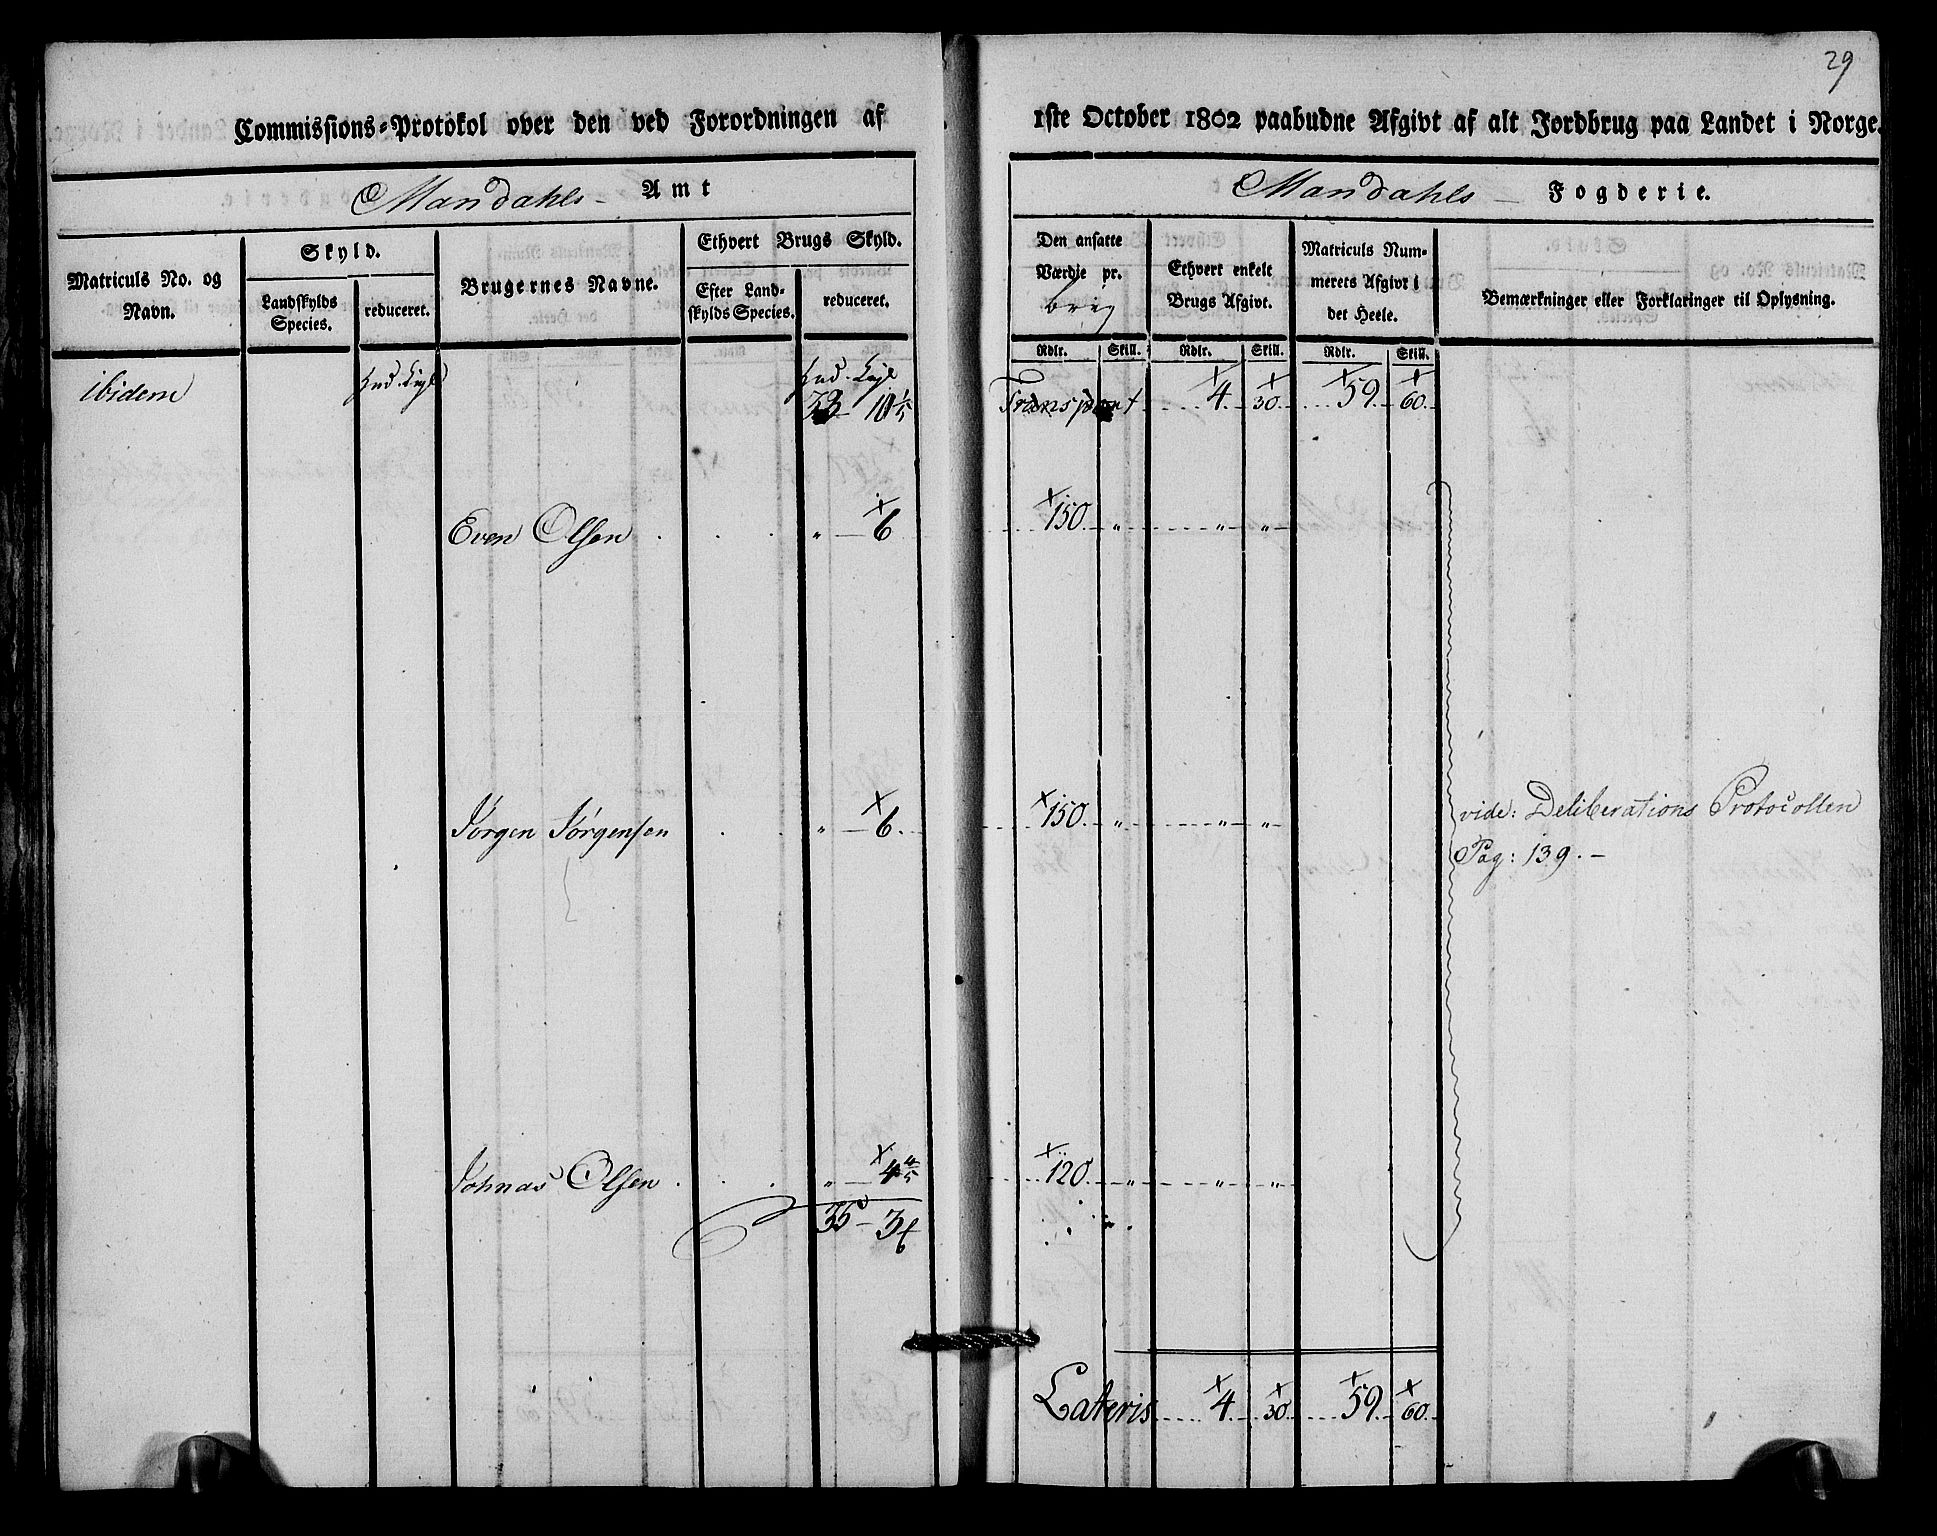 29
Commissions-Protokol over den ved Forordningen af 1ste October 1802 paabudne Afgivt af alt Jordbrug paa Landet i Norge.
Mandahls Amt
Mandahls Fogderie.
Matriculs No. og Navn.
Skyld.
Landskylds Species.
reduceret.
Brugernes Navne.
Ethvert Brugs Skyld.
Efter Landskylds Species.
reduceret.
Den ansatte Værdie pr. brug
Ethvert enkelt Brugs Afgivt.
Matriculs Nummerets Afgivt i det Heele.
Bemærkninger eller Forklaringer til Oplysning.
Rdlr. Skill. Rdlr. Skill. Rdlr. Skill.
ibidem
Transport 4 30 59 60
Even Olsen " 6 150 " " "
Jørgen Jørgensen " 6 150 " " "
vide: Deliberations Protocollen
Pag: 139.-
Johnas Olsen " 4 4/5 120 " " "
35 - 3
Lateris 4 30 59 60